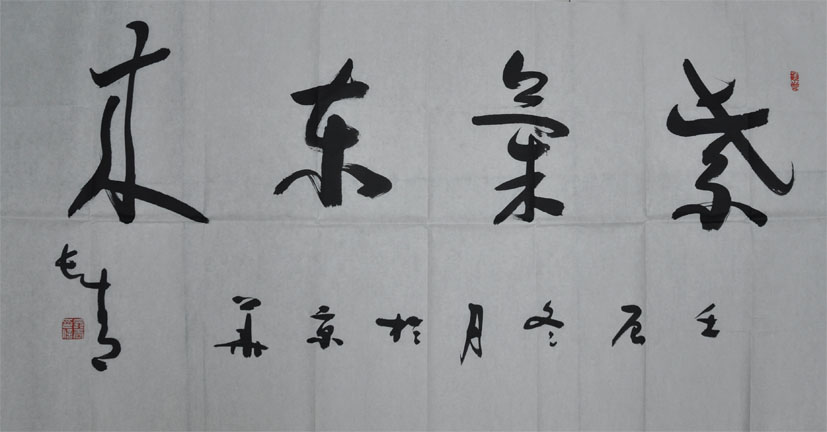 紫氣东来
壬辰冬月於京華
长青